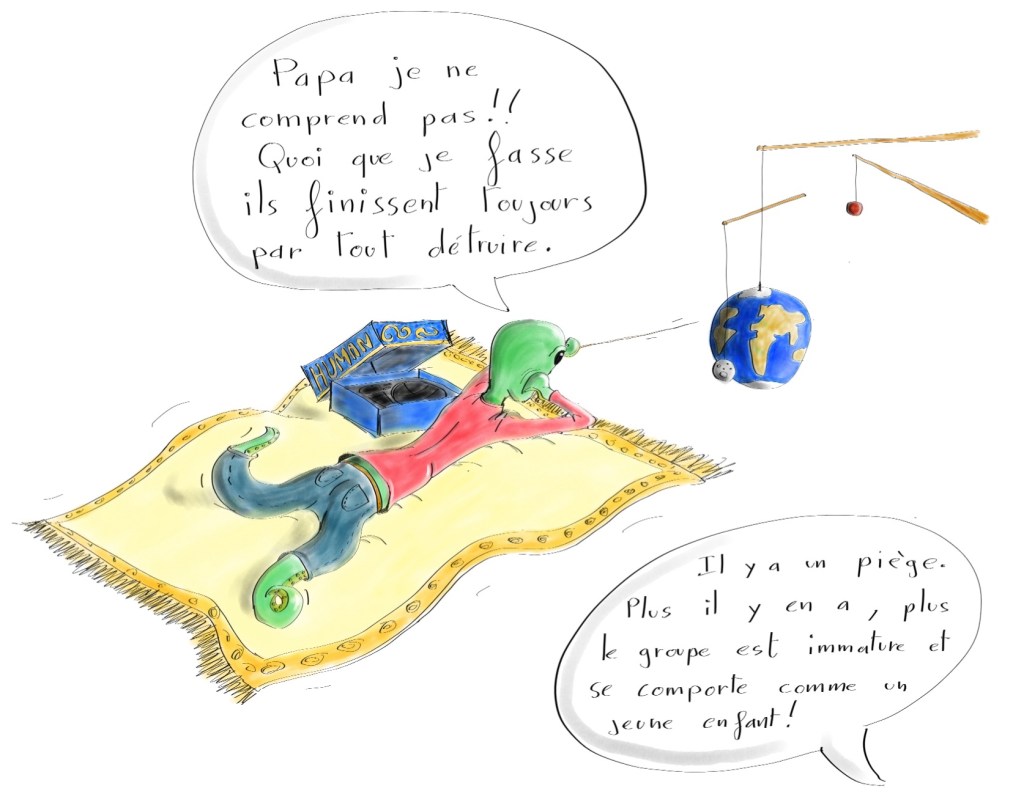 Papa je ne
comprend pas!!
Quoi que je fasse
ils finissent toujours
par tout détruire.
HUMAN
Il y a un piège.
Plus il y en a, plus
le groupe est immature et
se comporte comme un
jeune enfant!